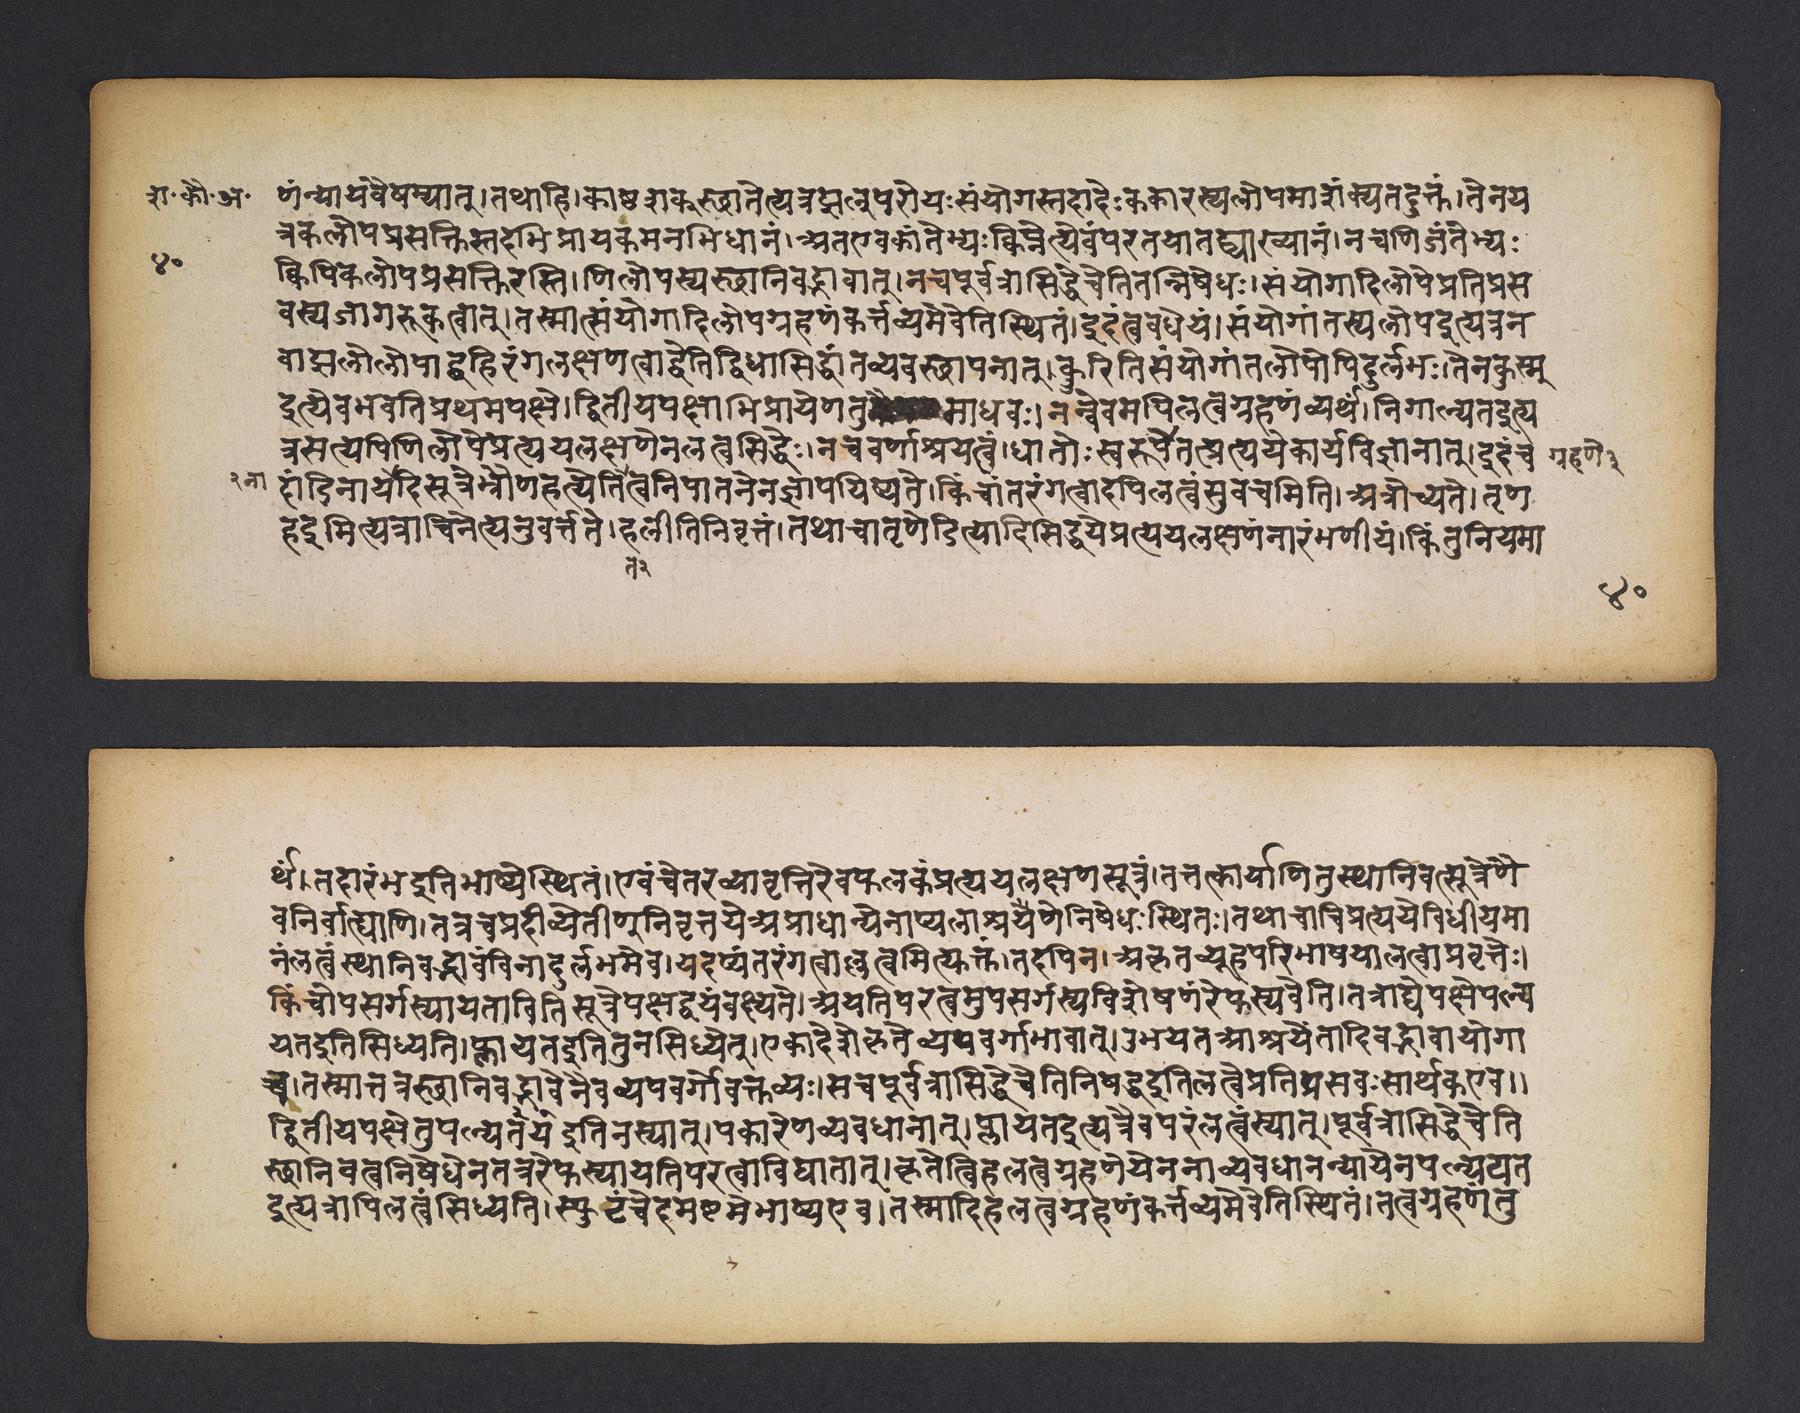 श॰ कौ॰ अ॰
४०
णंन्यायवैषम्यात्।तथाहि।काष्ठशक्स्थातेत्यत्रझल्परोयःसंयोगस्तदादेःककारस्यलोपमाशंक्यतदुक्तं।तेनय
त्रकलोपप्रसक्तिस्तदभिप्रायकमनभिधानं।अतएवकांतेभ्यःक्विन्नेत्येवंपरतयातद्व्याख्यानं।नचणिजंतेभ्यः
क्विपिकलोपप्रसक्तिरस्ति।णिलोपस्यस्थानिवद्भावात्।नचपूर्वत्रासिद्धेचेतितन्निषेधः।संयोगादिलोपेप्रतिप्रस
वस्यजागरूकत्वात्।तस्मात्संयोगादिलोपग्रहणंकर्त्तव्यमेवेतिस्थितं।इहंत्ववधेयं।संयोगांतस्यलोपइत्यत्रन
वाझलोलोपाद्बहिरंगलक्षणत्वाद्वेतिद्विधासिद्धांतव्यवस्थापनात्।कुरितिसंयोगांतलोपोपिदुर्लभः।तेनकुस्म्
इत्येवभवतिप्रथमपक्षे।द्वितीयपक्षाभिप्रायेणतु माधवः।नन्वेवमपिलत्वग्रहणंव्यर्थं।निगाल्यतइत्य
त्रसत्यपिणिलोपेप्रत्ययलक्षणेनलत्वसिद्धेः।नचवर्णाश्रयत्वं।धातोःस्वरूपेतत्प्रत्ययेकार्यविज्ञानात्।इहंच
ग्रहणे३
२ना
हांडिनायेदिसूत्रेभ्रौणहत्येतित्वनिपातनेनज्ञापयिष्यते।किंचांतरंगत्वादपिलत्वंसुवचमिति।अत्रोच्यते।तृण
हइमित्यत्राचिनेत्यनुवर्त्तते।हलीतिनिवृत्तं।तथाचातृणेडित्यादिसिद्धयेप्रत्ययलक्षणंनारंभणीयं।किंतुनियमा
त३
४०
र्थं।तदारंभइतिभाष्येस्थितं।एवंचेतरव्यावृत्तिरेवफलकंप्रत्ययलक्षणसूत्रं।तत्तत्कार्याणितुस्थानिवत्सूत्रेणै
वनिर्वाह्याणि।तत्रचप्रदीव्येतीण्निवृत्तयेअप्राधान्येनाप्यलाश्रयणेनिषेधःस्थितः।तथाचाचिप्रत्ययेविधीयमा
नंलत्वंस्थानिवद्भावंविनादुर्लभमेव।यदप्यंतरंगत्वाल्लत्वमित्युक्तं।तदपिन।अकृतव्यूहपरिभाषयालत्वाप्रवृत्तेः।
किंचोपसर्गस्यायताविति सूत्रेपक्षद्वयंवक्ष्यते।अयतिपरत्वमुपसर्गस्यविशेषणंरेफस्यवेति।तत्राद्येपक्षेपल्य
यतइतिसिध्यति।प्लायतइतितुनसिध्येत्।एकादेशेकृतेव्यपवर्गाभावात्।उभयतआश्रयेंतादिवद्भावायोगा
च्च।तस्मात्तत्रस्थानिवद्भावेनैवव्यपवर्गोवक्तव्यः।सचपूर्वत्रासिद्धेचेतिनिषिद्धइतिलत्वेप्रतिप्रसवःसार्थकएव।।
द्वितीयपक्षेतुपल्ययतइतिनस्यात्।पकारेणव्यवधानात्।प्लायतइत्यत्रैवपरंलत्वंस्यात्।पूर्वत्रासिद्धेचेति
स्थानिवत्वनिषेधेनतत्ररेफस्यायतिपरत्वाविघातात्।कृतेत्विहलत्वग्रहणेयेननाव्यवधानन्यायेनपल्ययत
इत्यत्रापिलत्वंसिध्यति।स्फुटंचेदमष्टमेभाष्यएव।तस्मादिहलत्वग्रहणंकर्त्तव्यमेवेतिस्थितं।तत्वग्रहणंतु